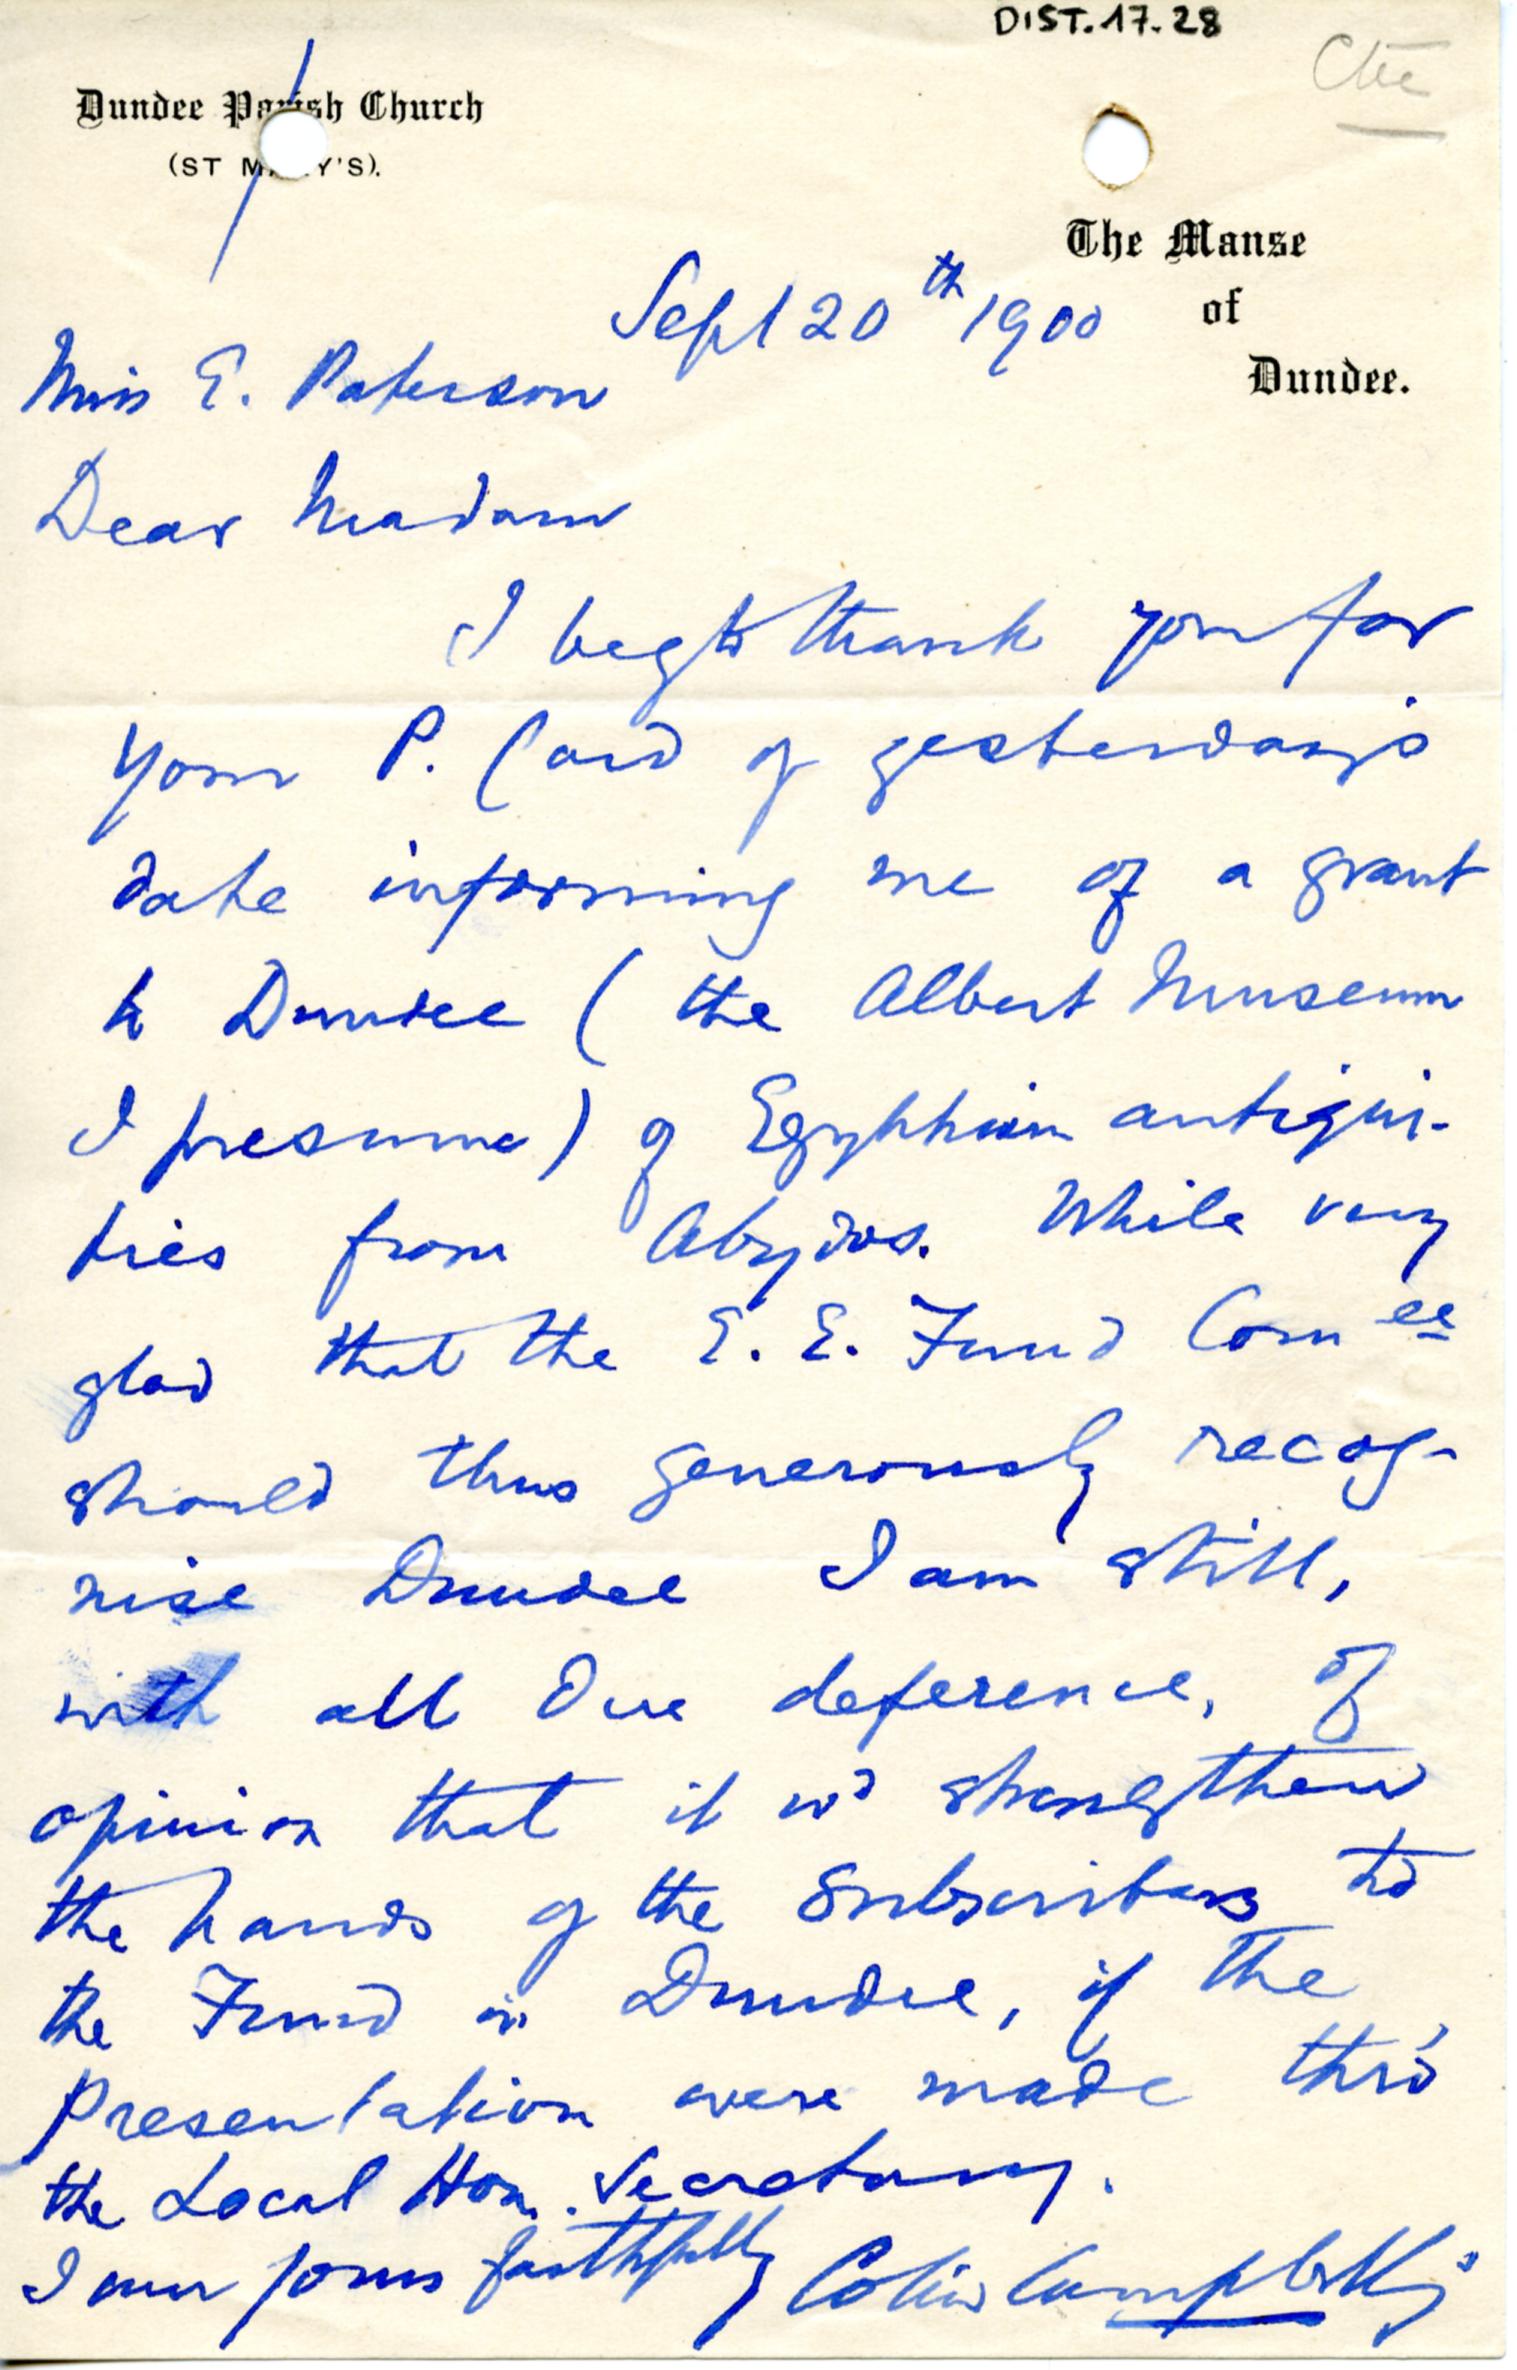 DIST.17.28
Ctee
Dundee Parish Church
(ST MARY'S).
The Manse
of
Dundee.
Sept 20th 1900
Miss E. Paterson
Dear Madam
I beg to thank you for
your P. Card of yesterday's
date informing me of a grant
to Dundee (the Albert Museum
I presume) of Egyptian antiqui-
ties from Abydos. While very
glad that the E. E. Fund Comee
should thus generously recog-
nise Dundee I am still,
with all due deference, of
opinion that it wd strengthen
the hands of the Subscribers to
the Fund in Dundee, if the
presentation were made thro'
the Local Hon. Secretary.
I am yours faithfully Colin Campbell